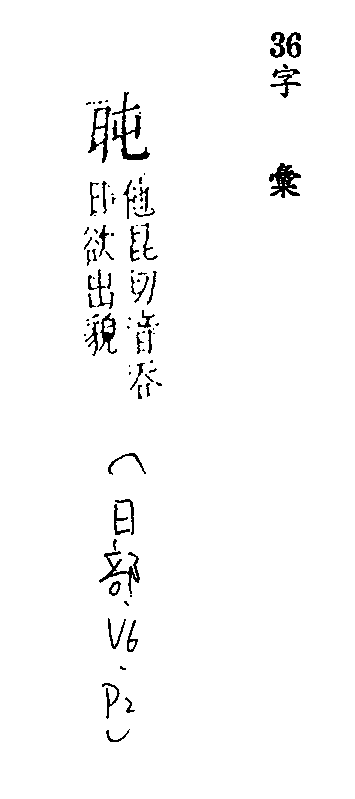 36字彙
旽
他昆切音吞
日欲出貌
(日部.V6.P2)